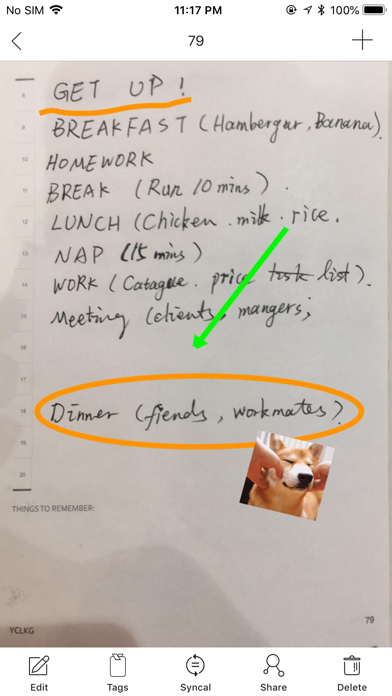 No SIM 11:17 PM 100%
79
8 GET UP!
9 BREAKFAST (Hambergur, Banana).
10 HOMEWORK
11 BREAK (Run 10 mins).
12 LUNCH (Chicken. milk. rice.
13 NAP (15 mins)
14 WORK (Catague. price task list).
15 Meeting (clients, mangers,
16
17
18 Dinner (fiends, workmates)
19
20
THINGS TO REMEMBER:
79
YCLKG
Edit Tags Syncal Share Delete